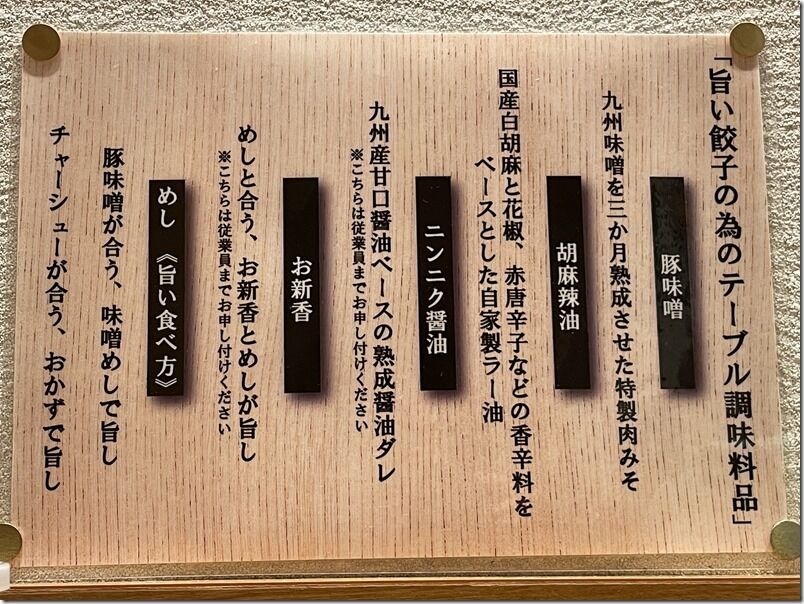 「旨い餃子の為のテーブル調味料品」
豚味噌
九州味噌を三か月熟成させた特製肉みそ
胡麻辣油
国産白胡麻と花椒、赤唐辛子などの香辛料を
ベースとした自家製ラー油
ニンニク醤油
九州産甘口醤油ベースの熟成醤油ダレ
※こちらは従業員までお申し付けください
お新香
めしと合う、お新香とめしが旨し
※こちらは従業員までお申し付けください
めし《旨い食べ方》
豚味噌が合う、味噌めしで旨し
チャーシューが合う、おかずで旨し